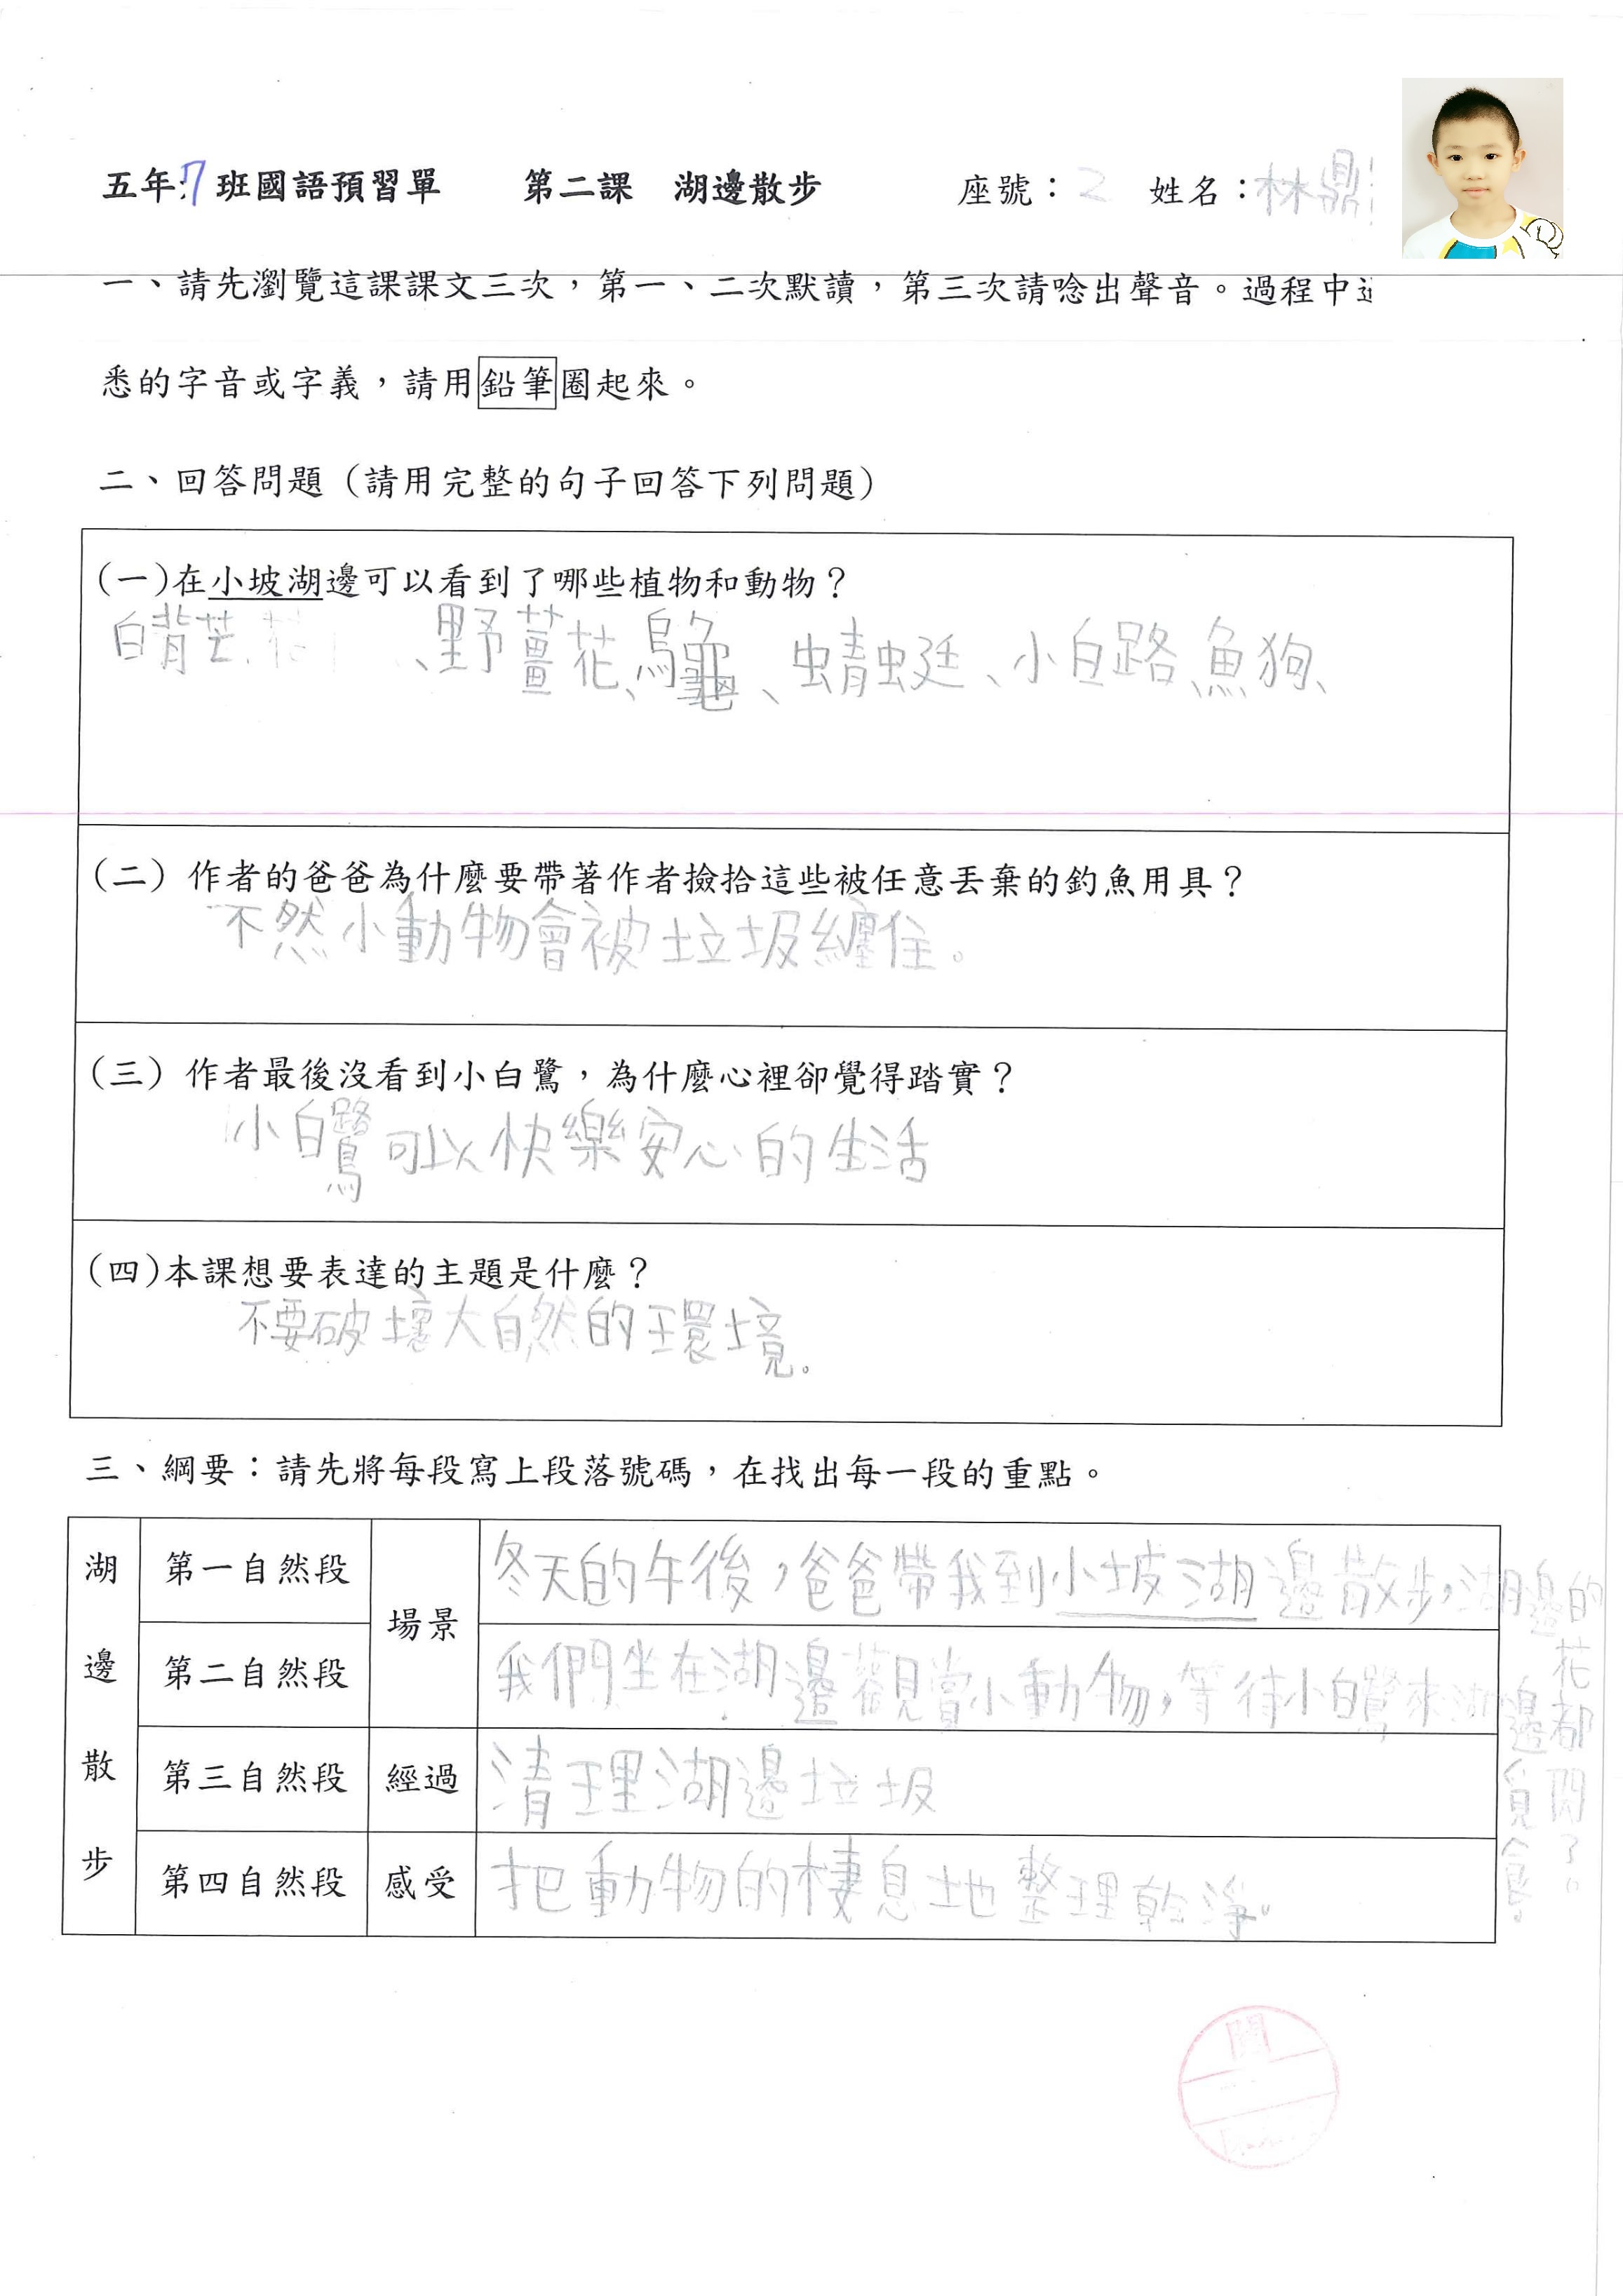 五年7班國語預習單 第二課 湖邊散步 座號：2 姓名：林鼎
一、請先瀏覽這課課文三次，第一、二次默讀，第三次請唸出聲音。過程中
悉的字音或字義，請用鉛筆圈起來。
二、回答問題（請用完整的句子回答下列問題）
(一)在小坡湖邊可以看到了哪些植物和動物？
白背芒、野薑花、烏龜、蜻蜓、小白路、魚狗、
(二) 作者的爸爸為什麼要帶著作者撿拾這些被任意丟棄的釣魚用具？
不然小動物會被垃圾纏住。
(三) 作者最後沒看到小白鷺，為什麼心裡卻覺得踏實？
小白鷺可以快樂安心的生活
(四)本課想要表達的主題是什麼？
不要破壞大自然的環境。
三、綱要：請先將每段寫上段落號碼，在找出每一段的重點。
湖邊散步
第一自然段 場景 冬天的午後，爸爸帶我到小坡湖邊散步，湖邊的花都開了。
第二自然段 我們坐在湖邊觀賞小動物，等待小白鷺來湖邊覓食。
第三自然段 經過 清理湖邊垃圾
第四自然段 感受 把動物的棲息地整理乾淨。
閱